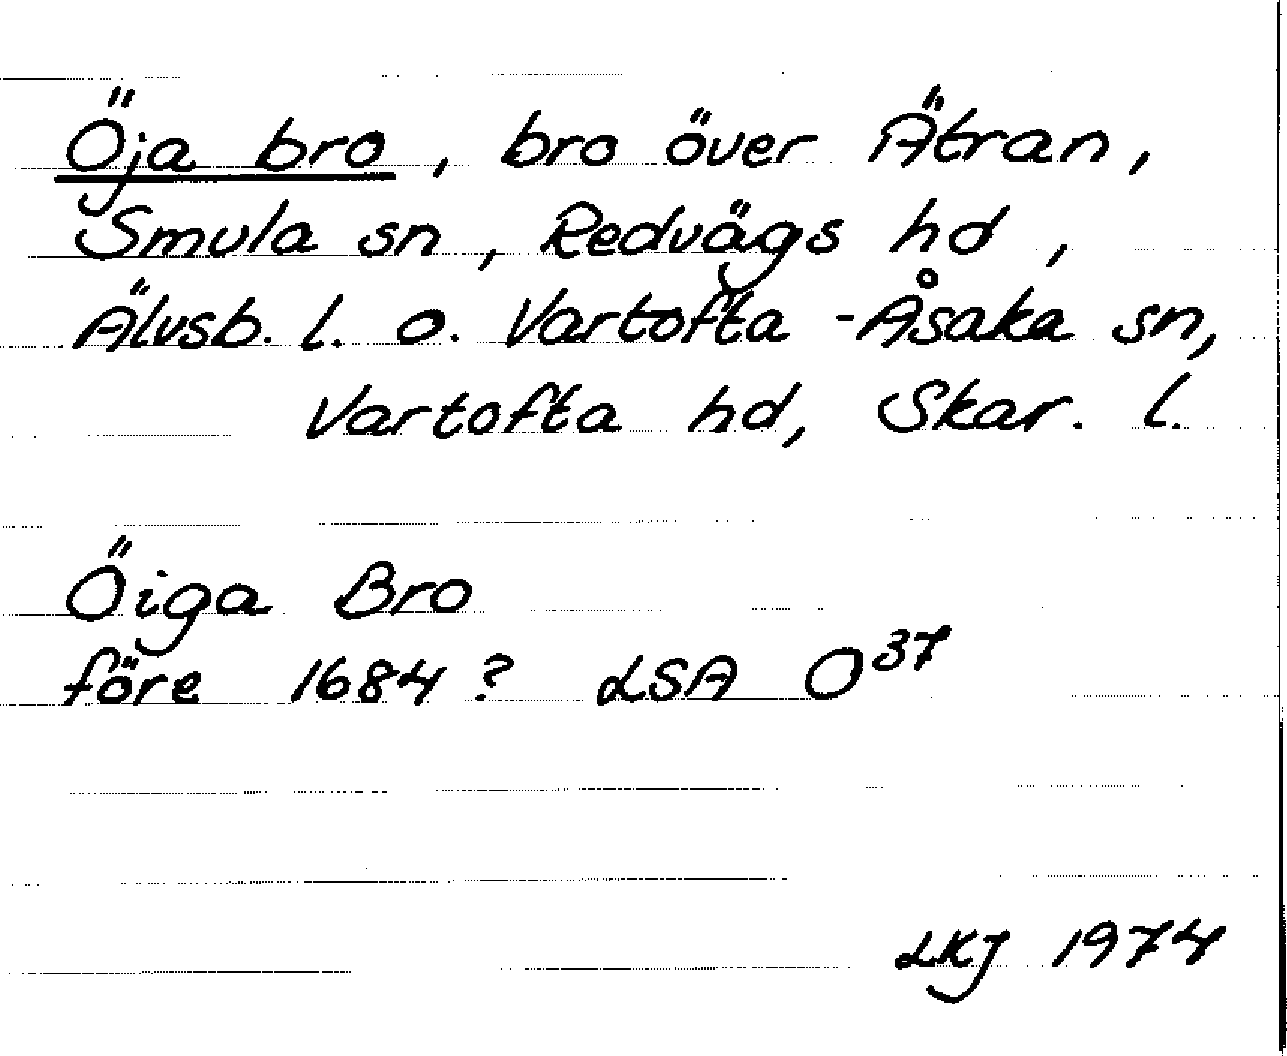 Öja bro, bro över Ätran,
Smula sn, Redvägs hd,
Älvsb. l. o. Vartofta-Åsaka sn,
Vartofta hd, Skar. l.
Öiga Bro
före 1684? LSA O³⁷
LKJ 1974